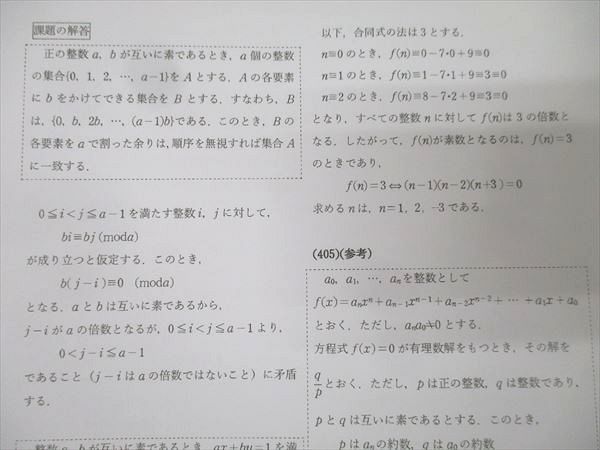 課題の解答
正の整数 a, b が互いに素であるとき, a 個の整数
の集合{0, 1, 2, …, a−1}を A とする. A の各要素
に b をかけてできる集合を B とする. すなわち, B
は, {0, b, 2b, …, (a−1)b}である. このとき, B の
各要素を a で割った余りは, 順序を無視すれば集合 A
に一致する.
0≦i<j≦a−1 を満たす整数 i, j に対して,
bi≡bj (moda)
が成り立つと仮定する. このとき,
b(j−i)≡0 (moda)
となる. a と b は互いに素であるから,
j−i が a の倍数となるが, 0≦i<j≦a−1 より,
0<j−i≦a−1
であること (j−i は a の倍数ではないこと) に矛盾
する.
整数 a, b が互いに素であるとき, ax+by=1 を満
以下, 合同式の法は 3 とする.
n≡0 のとき, f(n)≡0−7・0+9≡0
n≡1 のとき, f(n)≡1−7・1+9≡3≡0
n≡2 のとき, f(n)≡8−7・2+9≡3≡0
となり, すべての整数 n に対して f(n) は 3 の倍数と
なる. したがって, f(n)が素数となるのは, f(n)=3
のときであり,
f(n)=3⇔(n−1)(n−2)(n+3)=0
求める n は, n=1, 2, −3 である.
(405)(参考)
a₀, a₁, …, aₙを整数として
f(x)=aₙxⁿ+aₙ₋₁xⁿ⁻¹+aₙ₋₂xⁿ⁻²+ … +a₁x+a₀
とおく. ただし, aₙa₀≠0 とする.
方程式 f(x)=0 が有理数解をもつとき, その解を
q/p とおく. ただし, p は正の整数, q は整数であり,
p と q は互いに素であるとする. このとき,
p は aₙ の約数, q は a₀ の約数